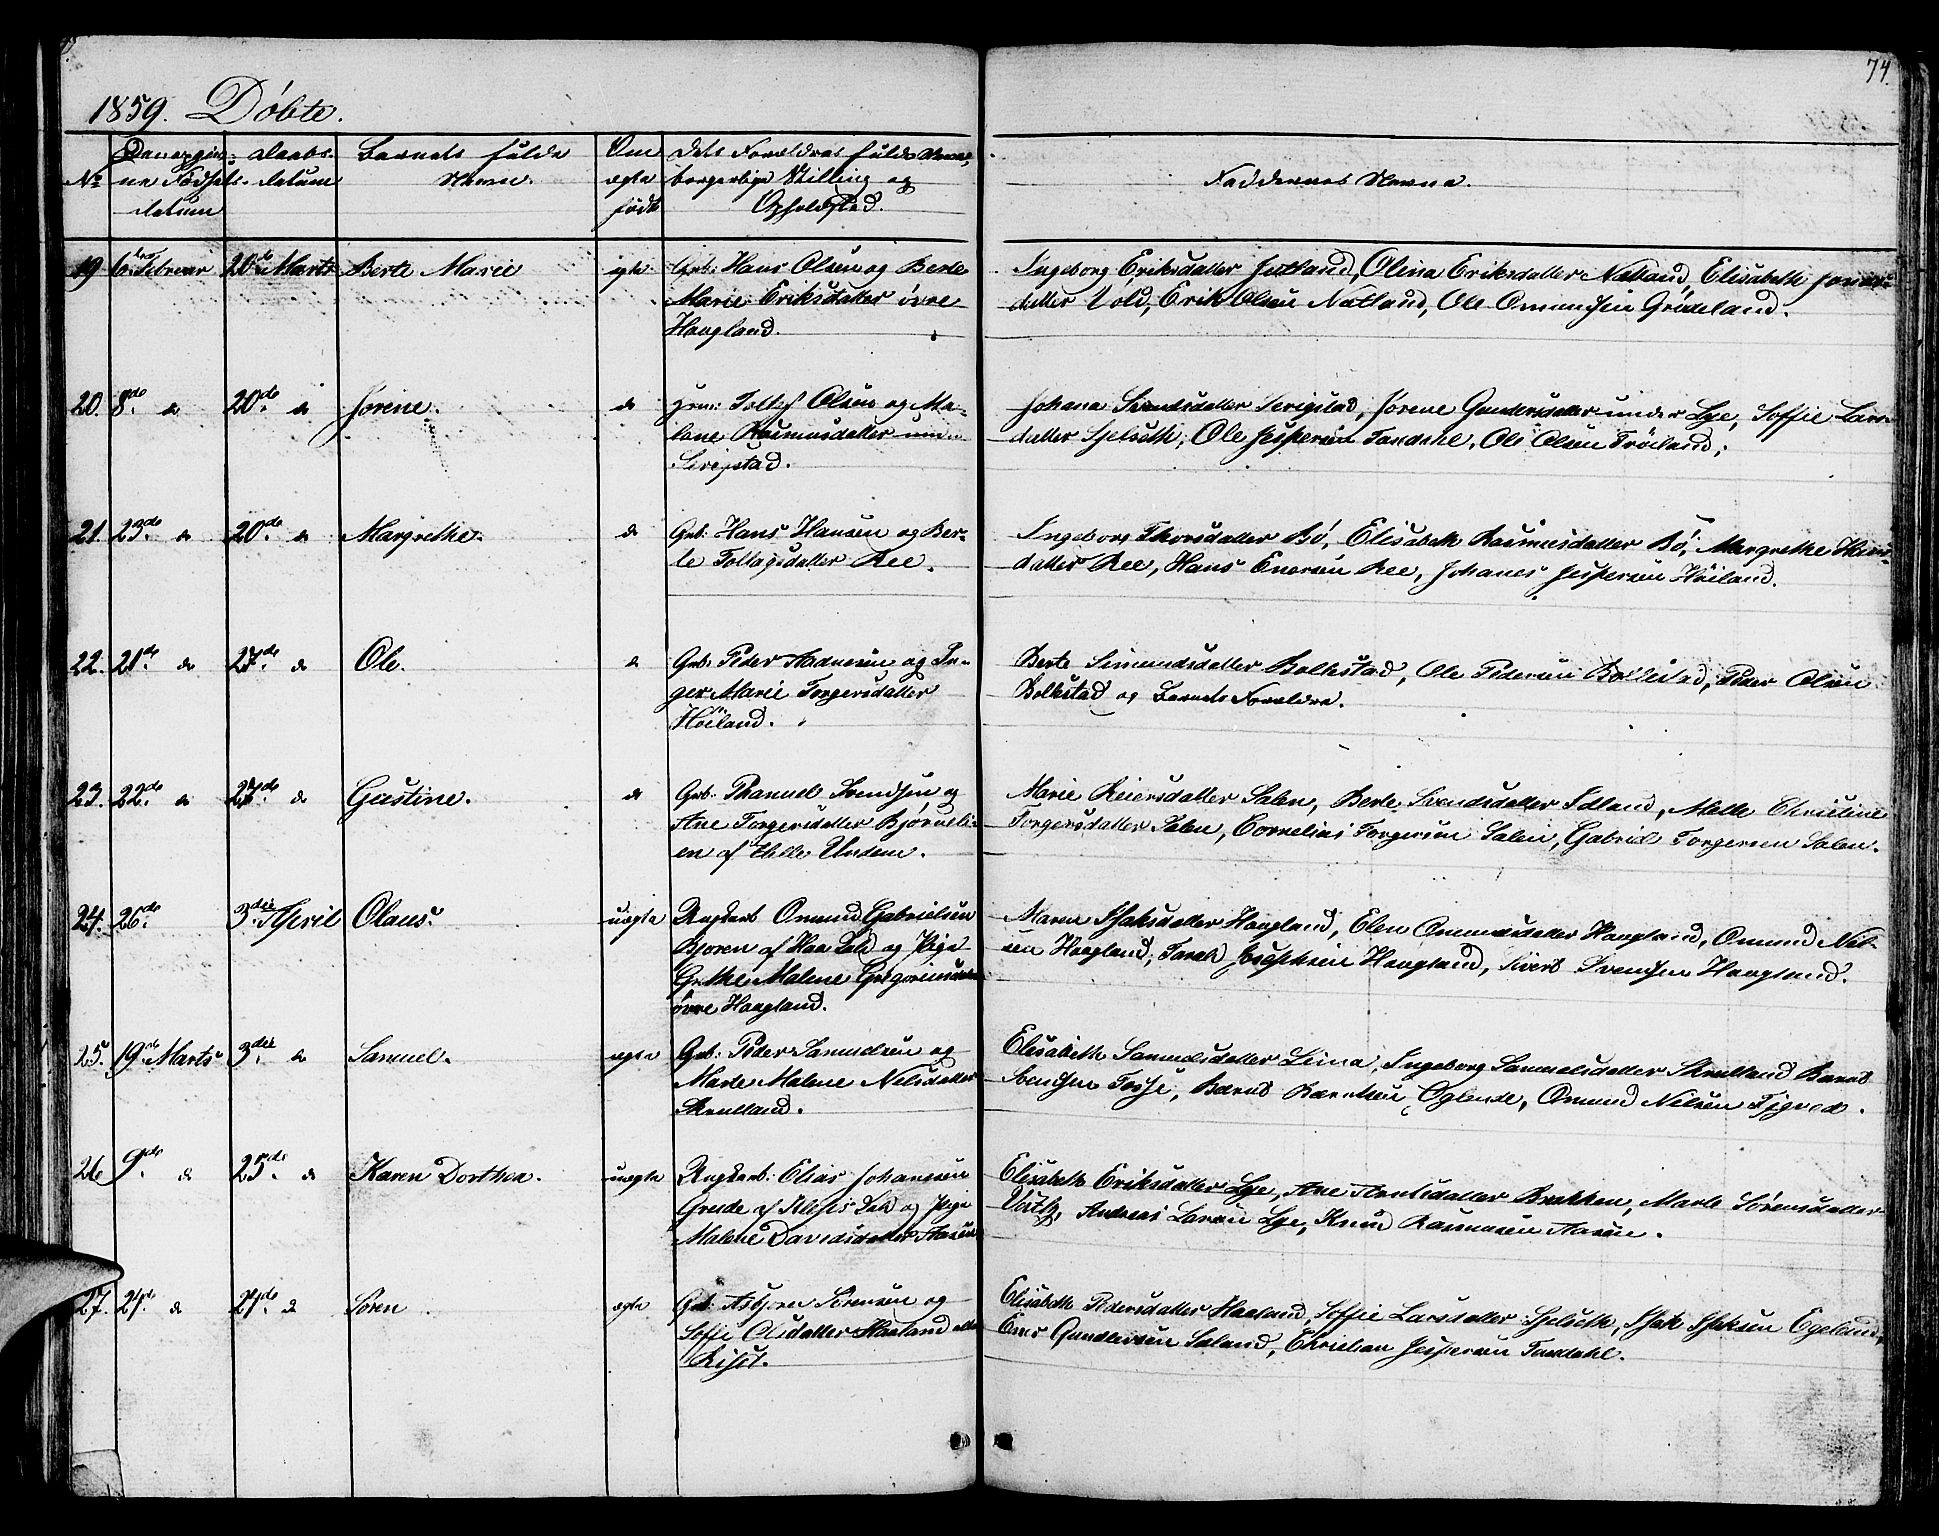 74.
1859. Döbte.
No
Den opgivne Födselsdatum
Daabsdatum
Barnets fulde Navn.
Om ægte födt
Dets Forældres fulde Navne, borgerlige Stilling og Opholdsted.
Faddernes Navne.
19 6te Februar 20de Marts Berte Marie egte Grb: Hans Olsen og Berte
Marie Eriksdatter övre
Haagland.
Ingeborg Eriksdatter Jutland, Olina Eriksdatter Natland, Elisabeth Jonas-
datter Vold, Erik Olsen Natland, Ole Omundsen Grödeland.
20. 8de do 20de do Jorine. do Tollef Olsen og Ma-
lene Rasmusdatter
Serigstad.
Johana Svendsdatter Serigstad, Jörene Gundersdatter under Lye, Soffie Lars-
datter Sjelseth, Ole Jespersen Tandahl, Ole Olsen Fröiland,
21. 23de do 20de do Margrethe. do Grb: Hans Hansen og Ber-
te Tollagsdatter Ree.
Ingeborg Thorsdatter Bö, Elisabeth Rasmusdatter Bö, Margrethe Hans-
datter Ree, Hans Enersen Ree, Johanes Jespersen Höiland.
22. 21de do 25de do Ole. do Grb: Peder Aadnesen og In-
ger Marie Torgersdatter
Höiland.
Berte Simundsdatter Bolkstad, Ole Pedersen Bolkstad, Peder Olsen
Bolkstad og Barnets Forældre.
23. 22de do 25de do Gustine. do Grb: Thanuel Svendsen og
Ane Torgersdatter Bjørneli-
en af Helle Undem.
Marie Reiersdatter Salen, Berte Svendsdatter Idland, Melle Christine
Torgersdatter Salen, Cornelius Torgersen Salen, Gabriel Torgersen Salen.
24. 26de 3die April Olaus. uægte Ungkarl Omund Gabrielsen
Bjoren af Haa Sd og Pige
Grethe Malene Gregoriusdatter
övre Haagland.
Maren Isaksdatter Haagland, Elen Omundsdatter Haagland, Omund Nil-
sen Haagland, Tarald Josephsen Haagland, Sivert Svendsen Haagland.
25. 19de Marts 3die do Samuel. ægte Grb: Peder Samuelsen og
Marte Malene Nilsdatter
Skrulland.
Elisabeth Samuelsdatter Lima, Ingeborg Samuelsdatter Skrulland Barnt
Svendsen Fosse, Bernt Berntsen Oglende, Omund Nilsen Tjgved.
26 9de do 25de do Karen Dorthea. uægte Ungkarl: Elias Johansen
Grude af Kleps Sd og Pige
Malene Davidsdatter Aasen
Elisabeth Eriksdatter Lye, Ane Arntsdatter Brekken, Marte Sörensdatter
Andreas Larsen Lye, Knud Rasmusen Aasen.
27. 24de do 24de do Sören ægte Grb: Asbjoren Sörensen og
Soffie Olsdatter Haaland eller
Risst.
Elisabeth Pedersdatter Haaland, Soffie Larsdatter Sjelseth, Isak Isaksen Egeland,
Ener Gundersen Saland, Christian Jespersen Tandahl.